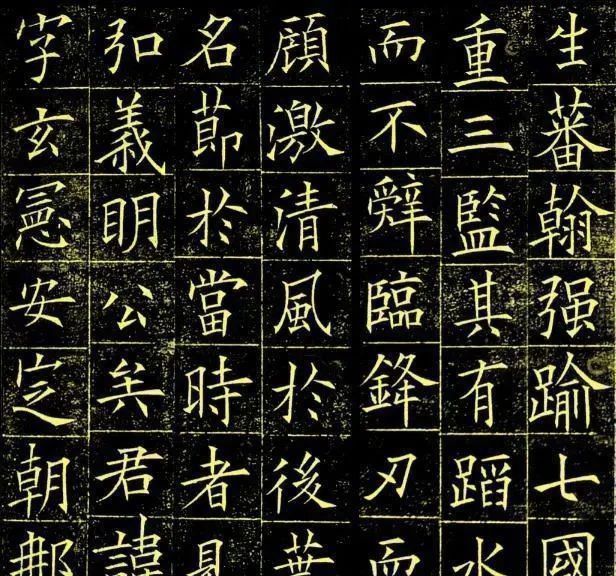 生蕃翰强踰七國
重三監其有蹈水
而不辤臨鋒刃而
顧激清風於後葉
名節於當時者見
弘義明公矣君諱
字玄憲安定朝那